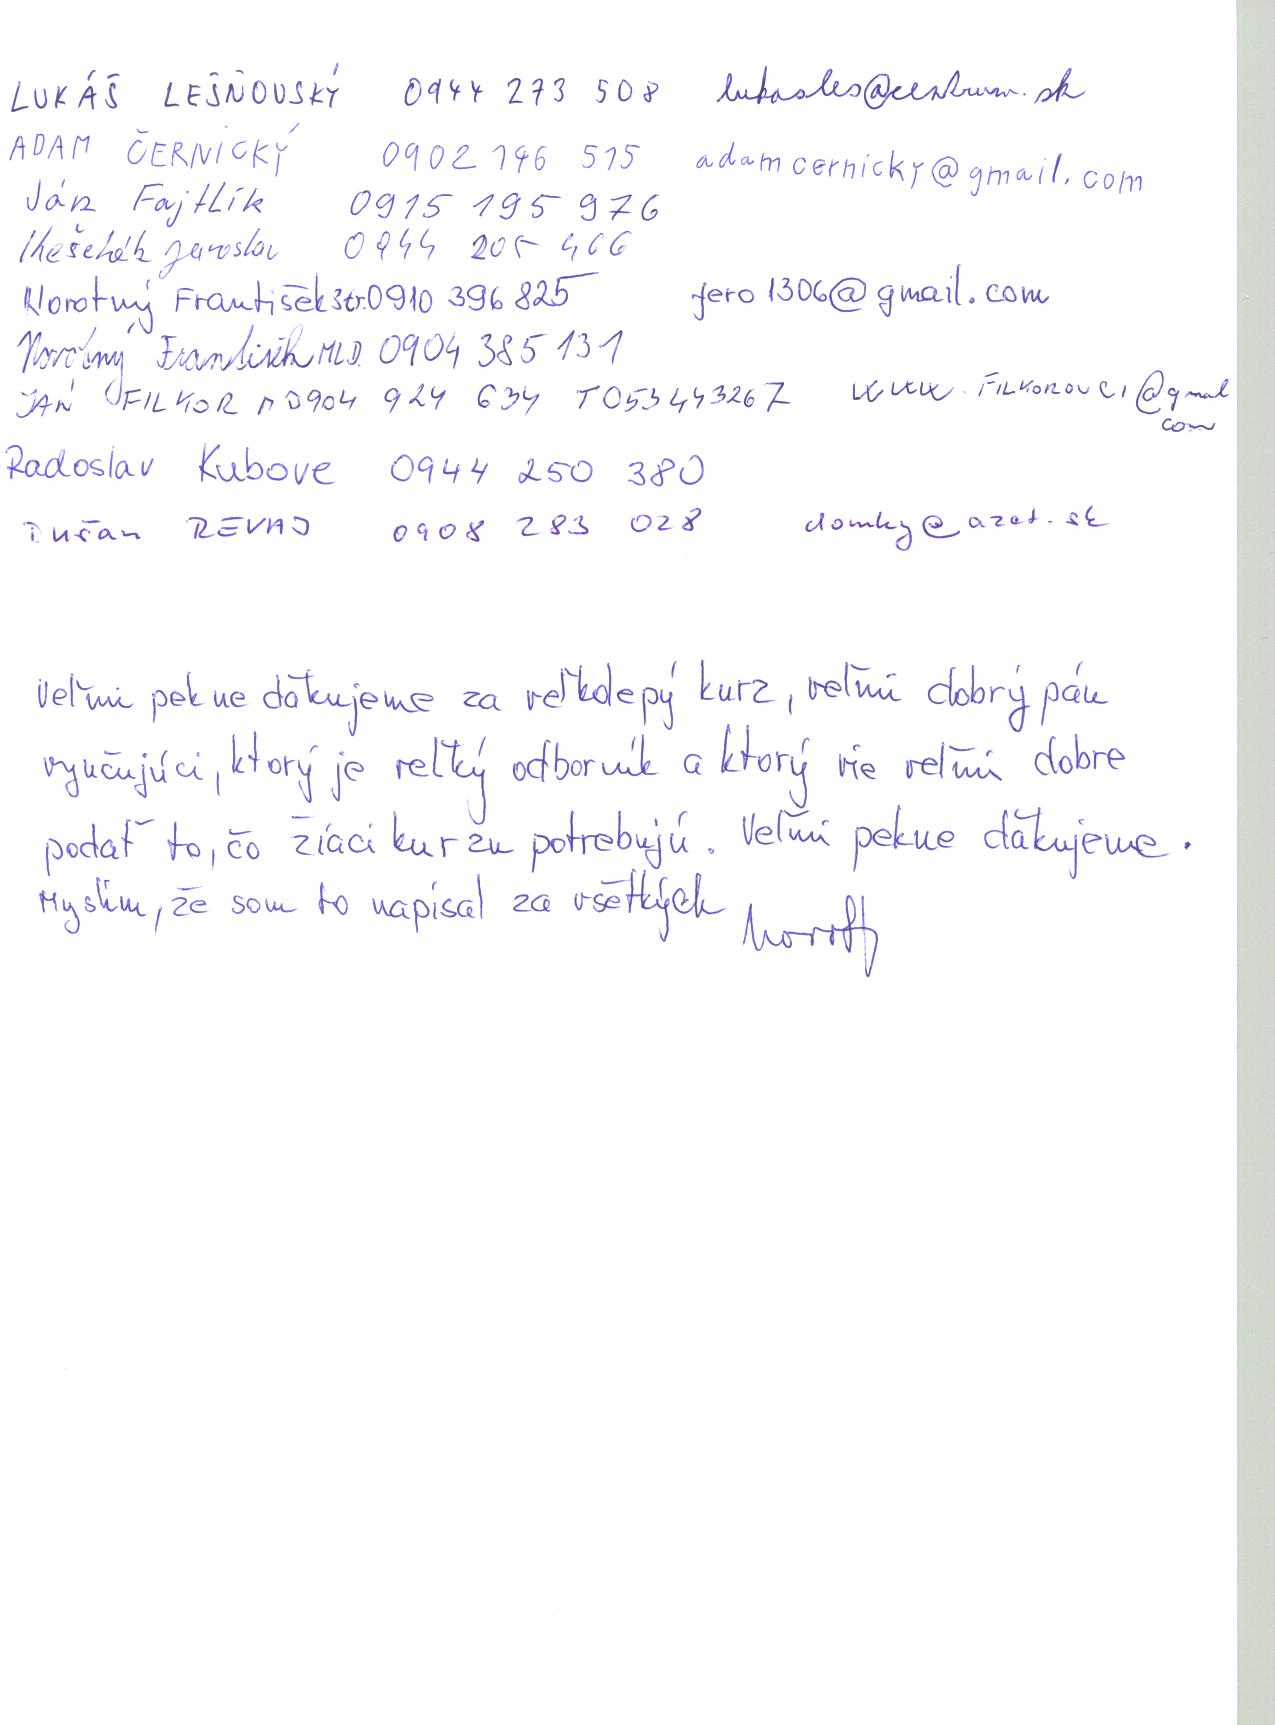 LUKÁŠ LEŠŇOVSKÝ 0944 273 508 lukasles@centrum.sk
ADAM ČERNICKÝ 0902 146 515 adamcernicky@gmail.com
Ján Fajtlík 0915 195 976
Jaroslav 0944 205 466
Novotný František str. 0910 396 825 fero1306@gmail.com
Novotný František MLD. 0904 385 131
JÁN FILKOR 0904 924 634 T053443267 www.FILKOROVCI@gmail
com
Radoslav Kubove 0944 250 380
Dušan REVAJ 0908 283 028 domky@azet.sk
Veľmi pekne ďakujeme za veľkolepý kurz, veľmi dobrý pán
vyučujúci, ktorý je veľký odborník a ktorý vie veľmi dobre
podať to, čo žiaci kurzu potrebujú. Veľmi pekne ďakujeme.
Myslím, že som to napísal za všetkých